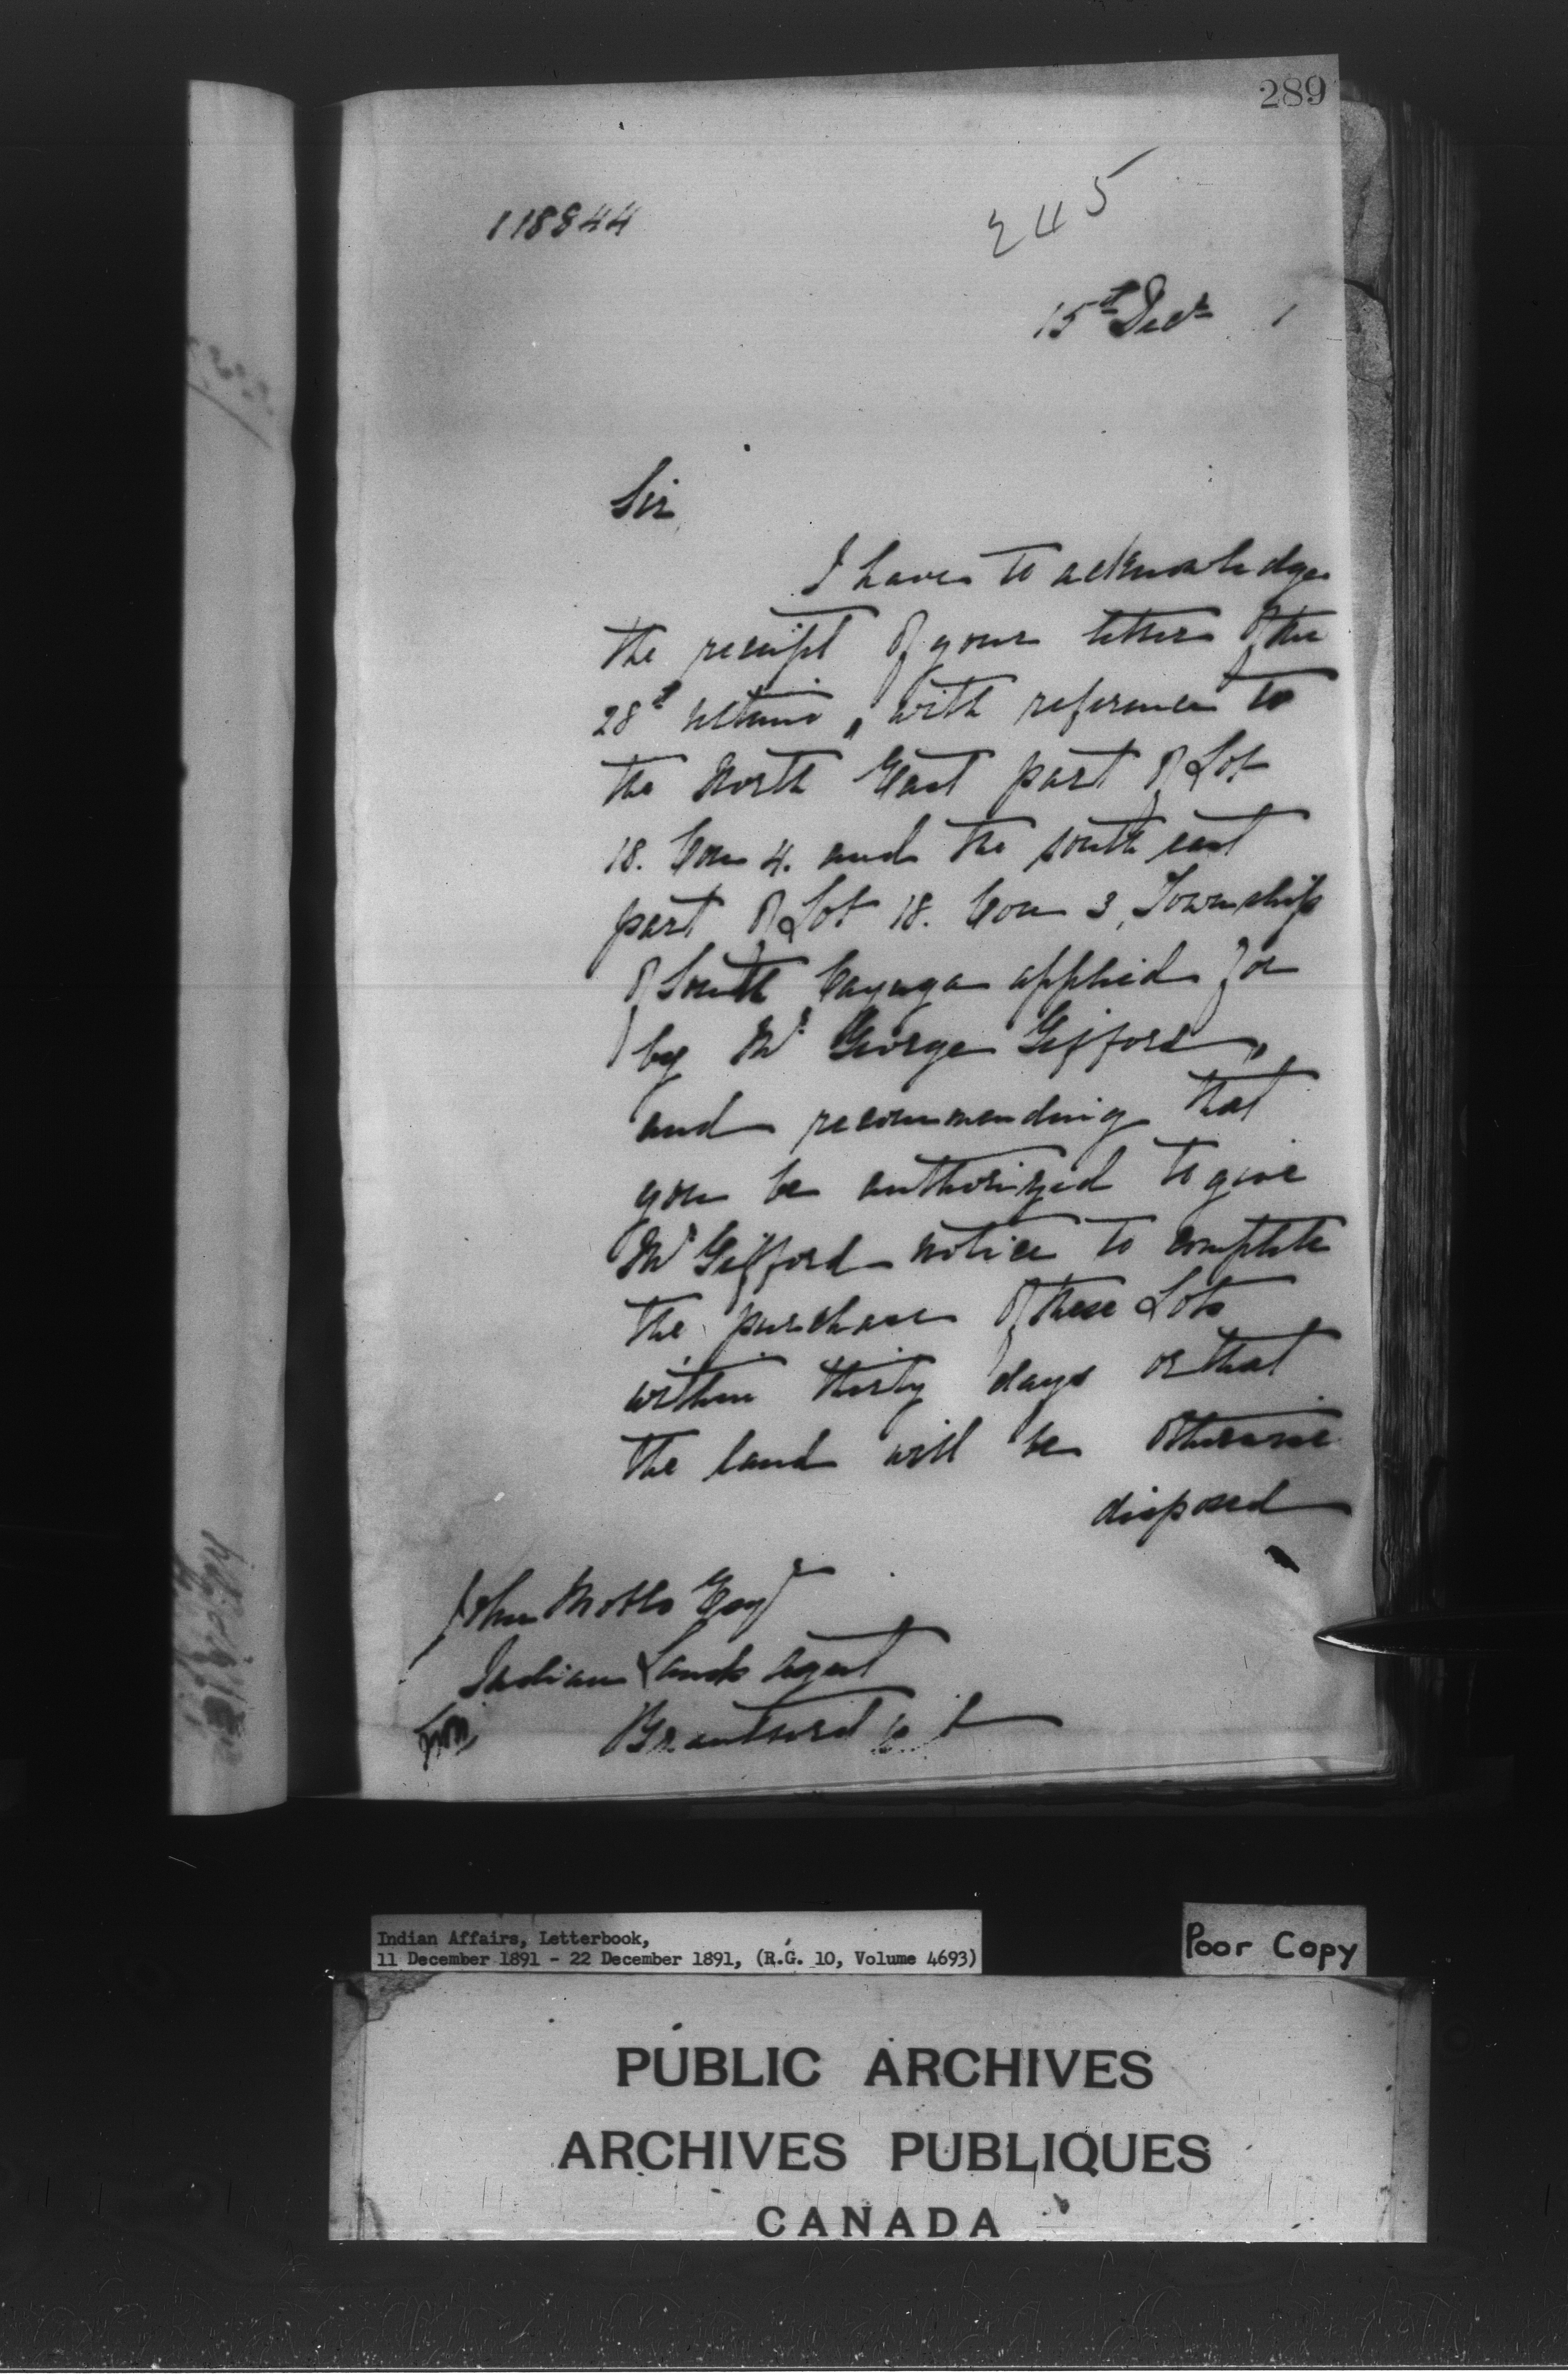 289
118844
245
15th Decr 1
Sir
I have to acknowledge
the receipt of your letter of the
28th ultimo, with reference to
the North East part of Lot
18. Con 4. and the south east
part of Lot 18. Con 3, Township
of South Cayuga applied for
by Mr George Gifford,
and recommending that
you be authorized to give
Mr Gifford notice to complete
the purchase of these Lots
within thirty days or that
the land will be otherwise
disposed
John Esqr
Indian Lands Agent
Brantford
Indian Affairs, Letterbook,
11 December 1891 - 22 December 1891, (R.G. 10, Volume 4693)
Poor Copy
PUBLIC ARCHIVES
ARCHIVES PUBLIQUES
CANADA